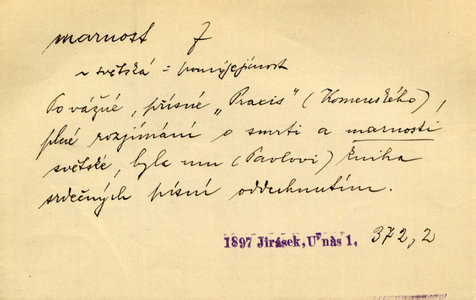 marnost f
~ světská = pomíjejícnost
Po vážné, přísné „Praxis" (Komenského),
plné rozjímání o smrti a marnosti
světské, byla mu (Pavlovi) kniha
srdečných písní oddechnutím.
1897 Jirásek, U nás 1. 372, 2